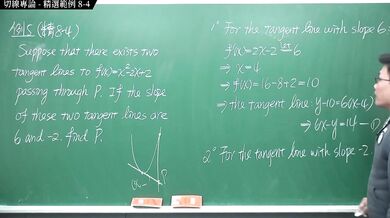 切線專論 - 精選範例 8-4
例15 (精8-4)
Suppose that there exists two
tangent lines to f(x)=x²-2x+2
passing through P. If the slope
of these two tangent lines are
6 and -2, find P.
P
1° For the tangent line with slope 6:
f'(x)=2x-2 let = 6
⇒ x=4
⇒ f(4)=16-8+2=10
⇒ the tangent line: y-10=6(x-4)
⇒ 6x-y=14 -①
2° For the tangent line with slope -2